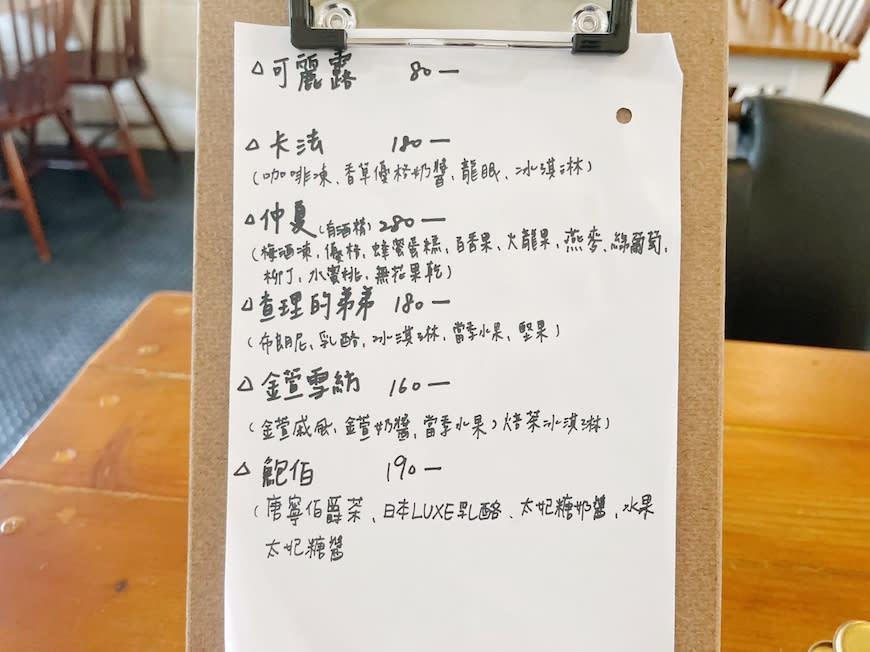 △可麗露 80—
△卡法 180—
(咖啡凍、香草優格奶醬、龍眼、冰淇淋)
△仲夏(有酒精) 280—
(梅酒凍、優格、蜂蜜蛋糕、百香果、火龍果、燕麥、綠葡萄、
柳丁、水蜜桃、無花果乾)
△查理的弟弟 180—
(布朗尼、乳酪、冰淇淋、當季水果、堅果)
△金萱雪紡 160—
(金萱戚風、金萱奶醬、當季水果、焙茶冰淇淋)
△鮑伯 190—
(唐寧伯爵茶、日本LUXE乳酪、太妃糖奶醬、水果
太妃糖醬